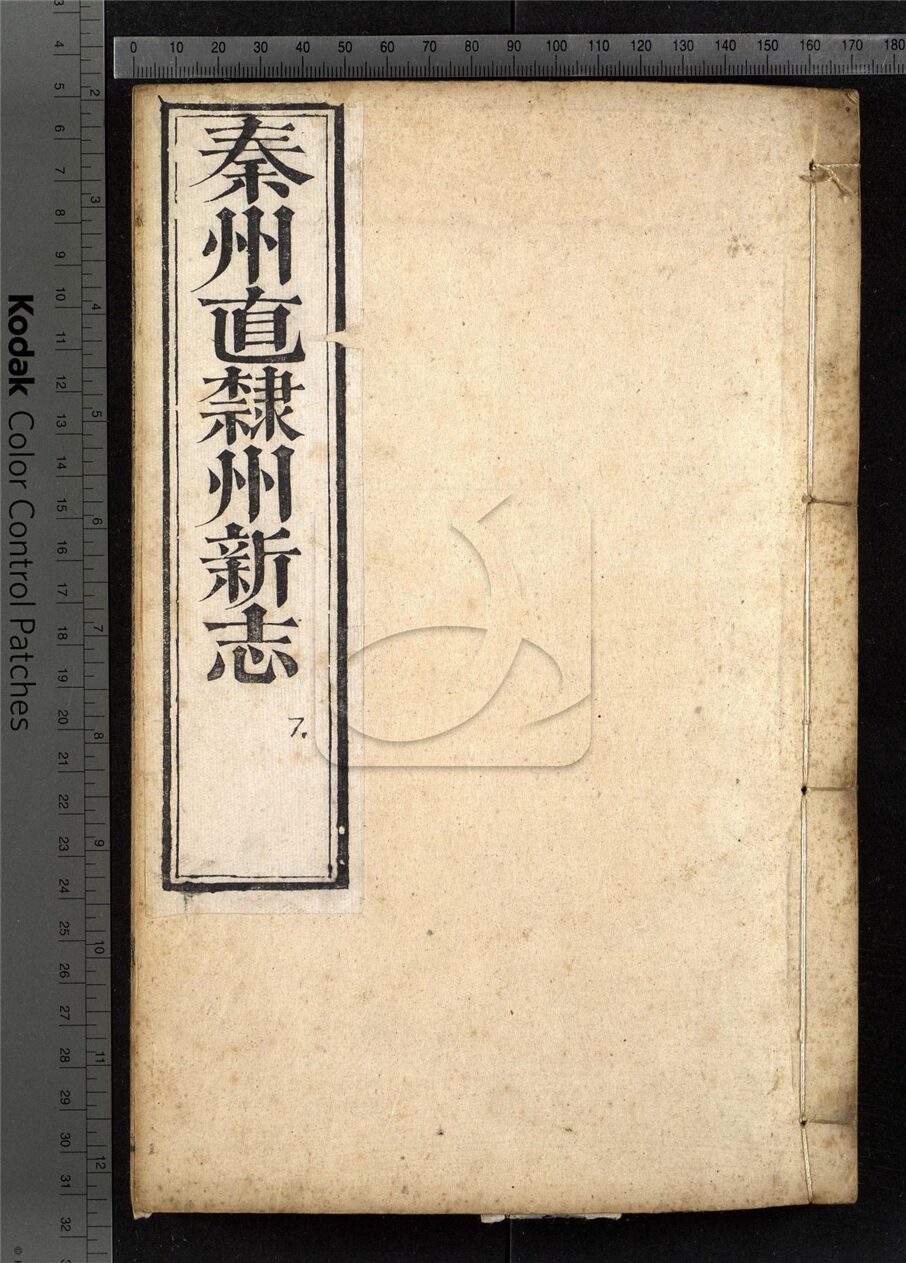 秦州直隸州新志
7.
0 10 20 30 40 50 60 70 80 90 100 110 120 130 140 150 160 170 180
Kodak Color Control Patches
3 4 5 6 7 8 9 10 11 12 13 14 15 16 17 18 19 20 21 22 23 24 25 26 27 28 29 30 31 32
2 3 4 5 6 7 8 9 10 11 12